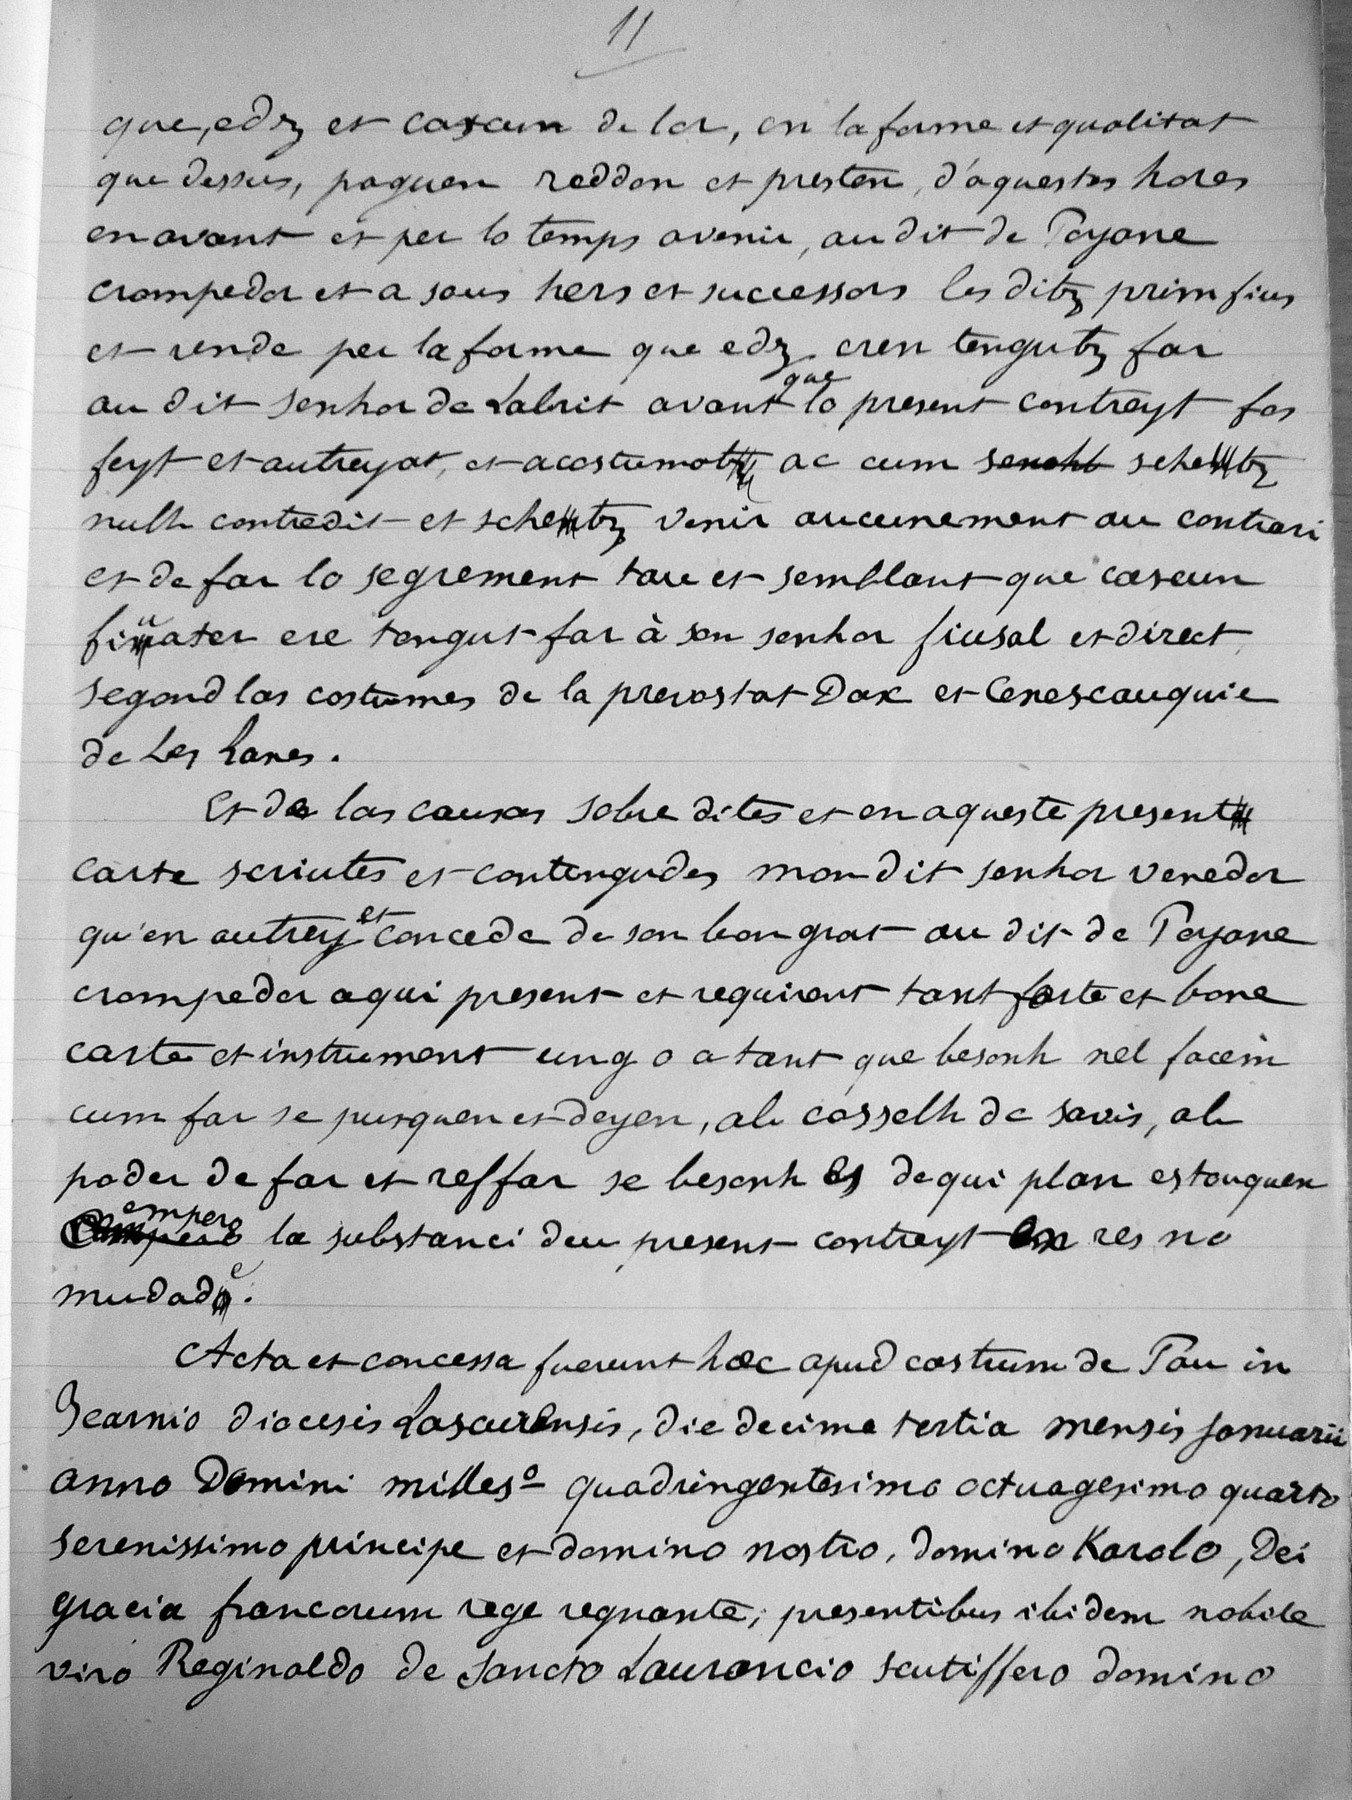 11
que, edz et cascun de lor, en la forme et qualitat
que dessus, paguen reddon et presten, d'aquestes hores
en avant et per lo temps avenir, au dit de Poyane
crompedor et a sous hers et successors les ditz prim fius
et rende per la forme que edz eren tengutz far
au dit senhor de Labrit avant que lo present contreyt fos
feyt et autreyat, et acostumat ac cum schetz
nulh contredit et schetz venir aucunement au contrari
et de far lo segrement tau et semblant que cascun
fiuater ere tengut far à son senhor fiusal et direct,
segond las costumes de la prevostat Dax et Cenescauquie
de Les Lanes.
Et de las causes sobre dites et en aqueste present
carte scriutes et contengudes mon dit senhor venedor
qu'en autrey et concede de son bon grat au dit de Poyane
crompedor aqui present et requirent tant forte et bone
carte et instrument ung o a tant que besonh nel facein
cum far se pusquen et deyen, ab cosselh de savis, ab
poder de far et reffar se besonh es dequi plan estonquen
empero la substanci deu present contreyt en res no
mudade.
Acta et concessa fuerunt hæc apud castrum de Pau in
Bearnio diocesis Lascurensis, die decime tertia mensis Januarii
anno Domini milleso quadringentesimo octuagesimo quarto
serenissimo principe et domino nostro, domino Karolo, Dei
gracia francorum rege regnante, presentibus ibidem nobile
viro Reginaldo de Sancto Laurancio scutiffero domino